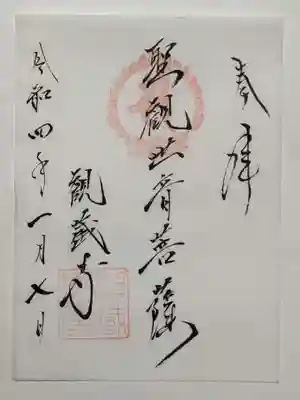 奉拝
聖觀世音菩薩
觀蔵寺
令和四年一月七日